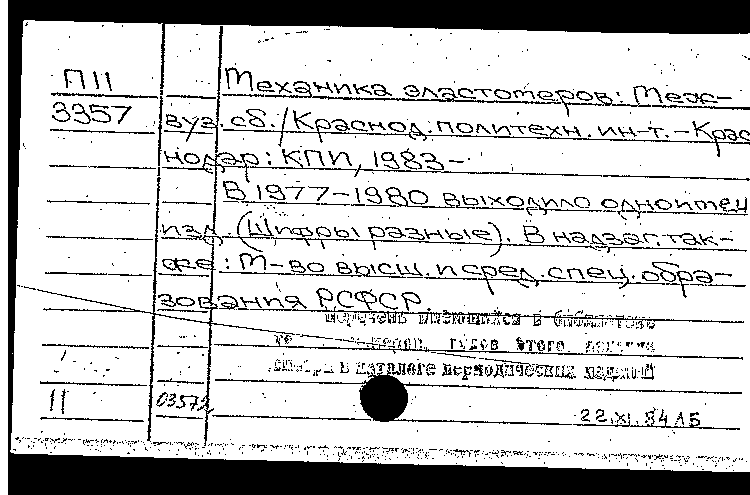 П11 Механика эластомеров: Меж-
3357 вуз. сб. / Краснод. политехн. ин-т. - Крас
нодар: КПИ, 1983-
В 1977-1980 выходило одноимен
изд. (Шифры разные). В надзаг. так-
же: М-во высш. и сред. спец. обра-
зования РСФСР
Перечень имеющихся в библиотеке
номеров, годов этого издания
смотри в каталоге периодических изданий
11 03572 22.XI.84 ЛБ